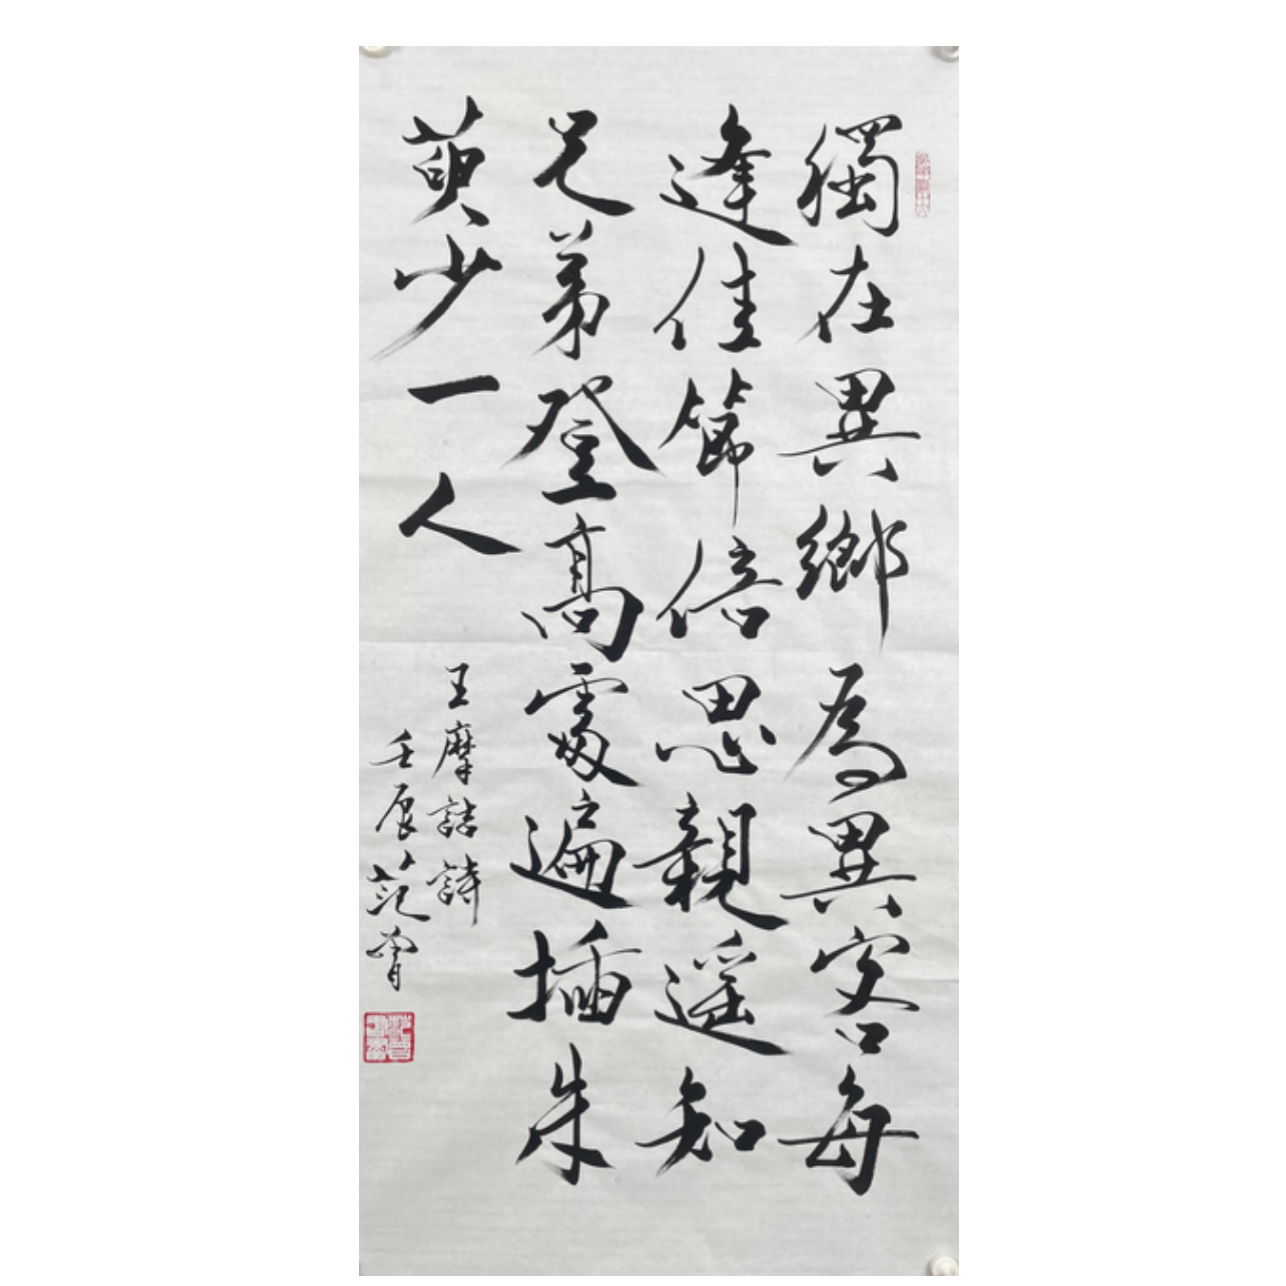 獨在異鄉為異客每
逢佳節倍思親遙知
兄弟登高處遍插朱
萸少一人
王摩詰詩
壬辰范曾